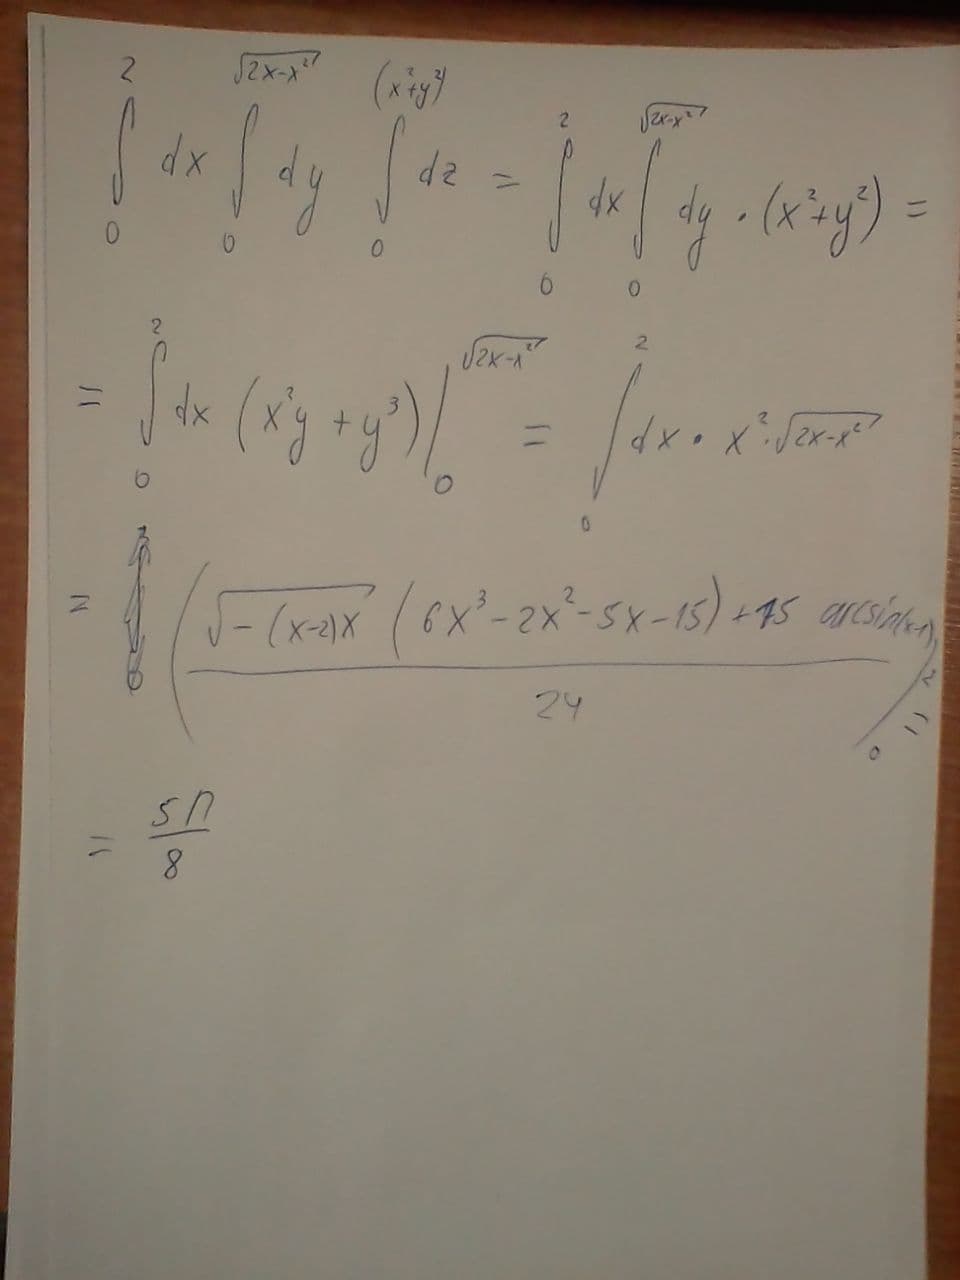 ∫₀² dx ∫₀^√(2x-x²) dy ∫₀^(x²+y²) dz = ∫₀² dx ∫₀^√(2x-x²) dy · (x²+y²) =
= ∫₀² dx (x²y + y³)|₀^√(2x-x²) = ∫₀² dx · x² · √(2x-x²)
= (√(-(x-2)x) (6x³-2x²-5x-15) + 15 arcsin(x-1))/24 |₀² =
= 5π/8